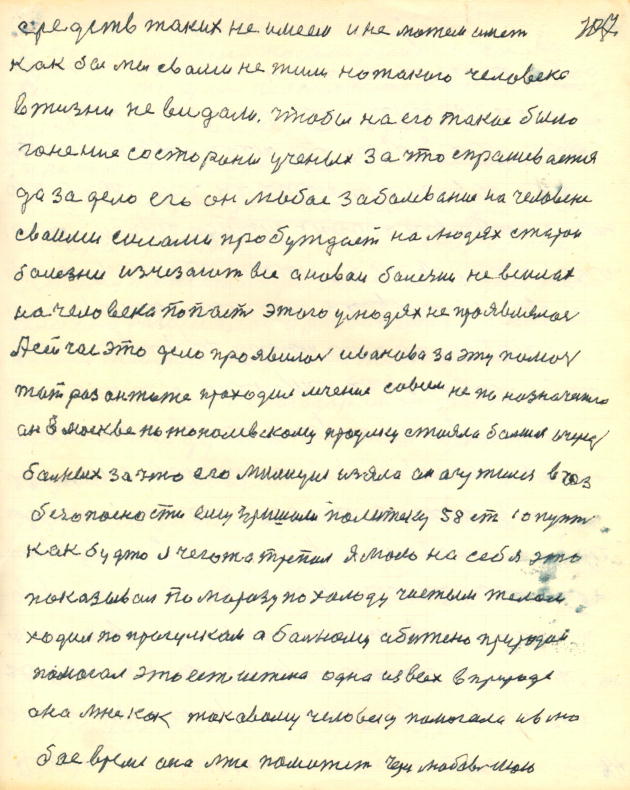 средств таких не имеем и не можем имет 107
как бы мы свами не жили но такого человека
в жизни не видали. чтобы на его такие было
гонение состороны ученых за что спрашивается
да за дело его он любое заболвание на человеке
своими силами пробуждает на людях старои
болезни изчезают все а новаи болезни не всилах
на человека попаст этого улюдях не проявлялос
А сичас это дело проявилос иванова за эту помощ
тот раз он тоже проходил лечение совсем не по назначению
он в москве по тополевскому проулку стояла болшая очеред
болных за что его милиция изяла он очутился в гоз
безопасности ему пришили политику 58 ст 10 пункт
как будто я чегота трепал я мол на себя это
показывал По морозу по холоду чистым телом
ходил по прогулкам а болному обижено природой
помогал это ест истена одна из всех в природе
она мне как таковому человеку помогала и в лю
бое время она мне поможет через любов мою